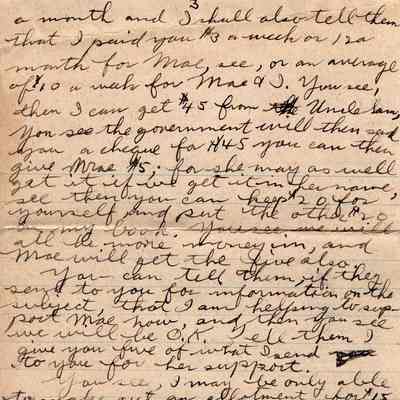 3
a month and I shall also tell them
that I paid you $3 a week or 12 a
month for Mae, see, or an average
of $10 a week for Mae & I. You see,
then I can get $45 from Uncle Sam,
You see the government will then send
you a cheque for $45 you can then
give Mae $5. for she may as well
get it if we get it in her name,
see then you can keep $20 for
yourself and put the other $20
in my book. You see we will
all be more money in, and
Mae will get the five also.
You can tell them, if they
send to you for information on the
subject, that I am helping to sup-
port Mae now, and then you see
we will be O.K. Tell them I
give you five of what I send
to you for her support.
You see, I may be only able
to make out an allotment for $15